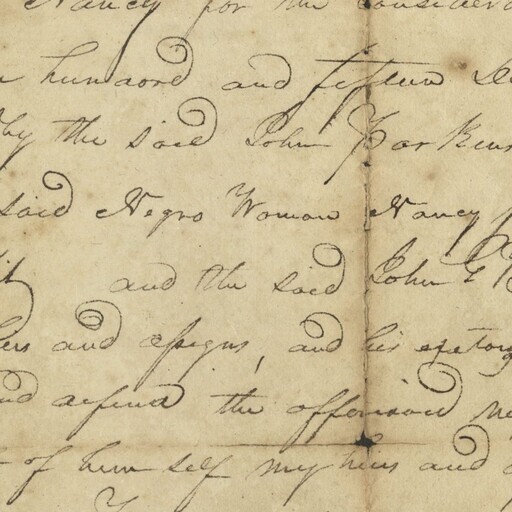 Nancy for the consider
hundord and fifteen
by the said John Parkins
said Negro Woman Nancy
and the said John
and assigns, and his
and defend the afforsaid
of him self my heirs and